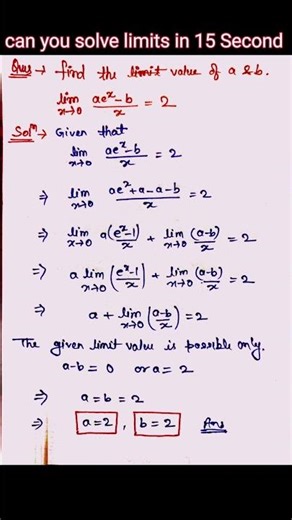 can you solve limits in 15 Second
Ques → find the limit value of a & b.
lim x→0 (ae^x - b)/x = 2
Sol^n → Given that
lim x→0 (ae^x - b)/x = 2
⇒ lim x→0 (ae^x + a - a - b)/x = 2
⇒ lim x→0 a(e^x - 1)/x + lim x→0 (a-b)/x = 2
⇒ a lim x→0 (e^x - 1)/x + lim x→0 (a-b)/x = 2
⇒ a + lim x→0 (a-b)/x = 2
The given limit value is possible only.
a - b = 0 or a = 2
⇒ a = b = 2
⇒ a = 2 , b = 2 Ans